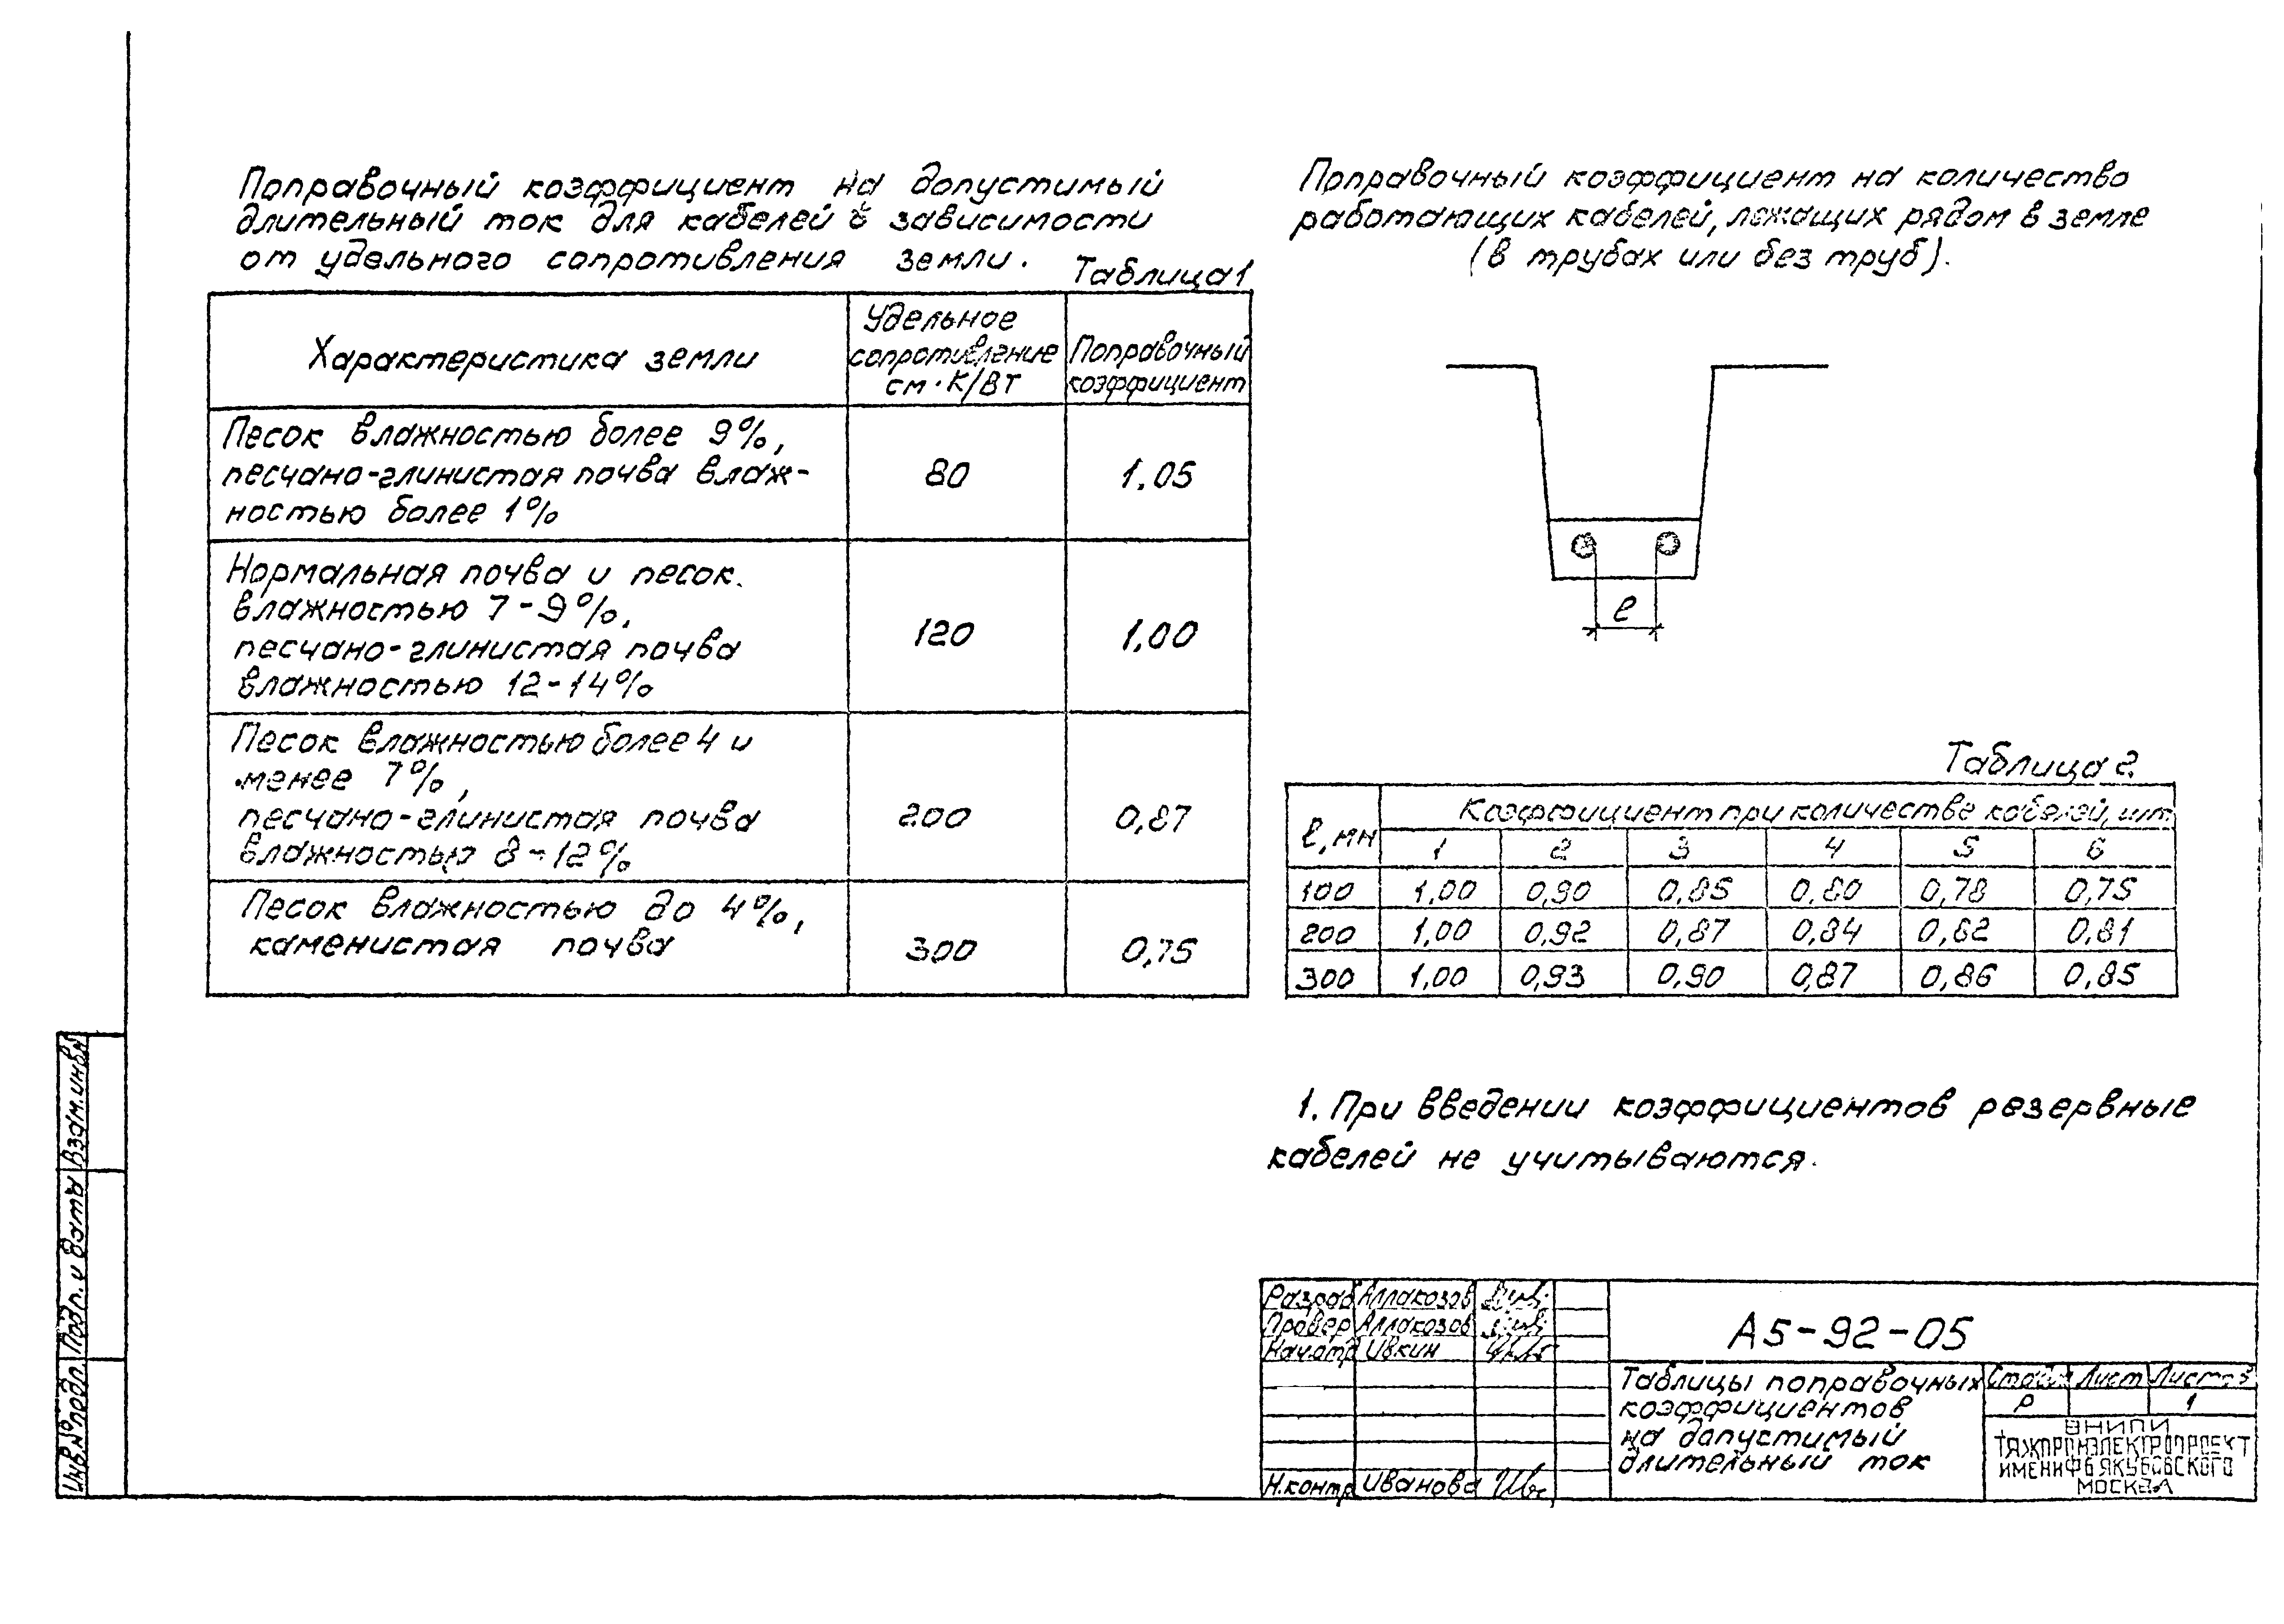 Поправочный коэффициент на допустимый
длительный ток для кабелей в зависимости
от удельного сопротивления земли.
Таблица 1
Характеристика земли
Удельное
сопротивление
см·К/Вт
Поправочный
коэффициент
Песок влажностью более 9%,
песчано-глинистая почва влаж-
ностью более 1%
80
1.05
Нормальная почва и песок.
влажностью 7-9%,
песчано-глинистая почва
влажностью 12-14%
120
1,00
Песок влажностью более 4 и
менее 7%,
песчано-глинистая почва
влажностью 8-12%
200
0,87
Песок влажностью до 4%,
каменистая почва
300
0,75
Поправочный коэффициент на количество
работающих кабелей, лежащих рядом в земле
(в трубах или без труб).
ℓ
Таблица 2.
ℓ, мм
Коэффициент при количестве кабелей, шт
1 2 3 4 5 6
100 1,00 0,90 0,85 0,80 0,78 0,75
200 1,00 0,92 0,87 0,84 0,82 0,81
300 1,00 0,93 0,90 0,87 0,86 0,85
1. При введении коэффициентов резервные
кабелей не учитываются.
Разраб Аллакозов
Провер Аллакозов
Нач.отд Ивкин
Н.контр Иванова
А5-92-05
Таблицы поправочных
коэффициентов
на допустимый
длительный ток
Стадия Лист Листов
Р 1
ВНИПИ
ТЯЖПРОМЭЛЕКТРОПРОЕКТ
ИМЕНИ Ф Б ЯКУБОВСКОГО
МОСКВА
Взам.инв.№
Подп. и дата
Инв.№ подл.